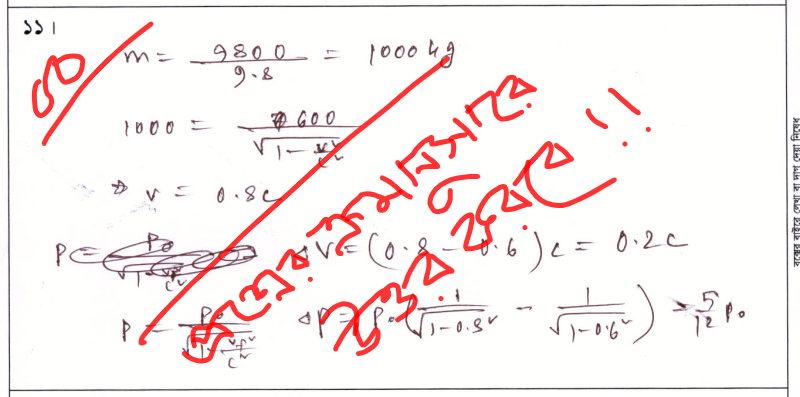 ১১।
m = 9800 / 9.8 = 1000 kg
1000 = 600 / √(1 - v²/c²)
⇒ v = 0.8c
P = P₀ / √(1 - v²/c²) ΔV = (0.8 - 0.6) c = 0.2c
P = P₀ / √(1 - v²/c²) ΔP = P₀ (1/√(1-0.8²) - 1/√(1-0.6²)) = 5/12 P₀
প্রশ্নের ক্রমানুসারে
উত্তর হবে !!
বক্সের বাইরে লেখা বা দাগ দেয়া নিষেধ